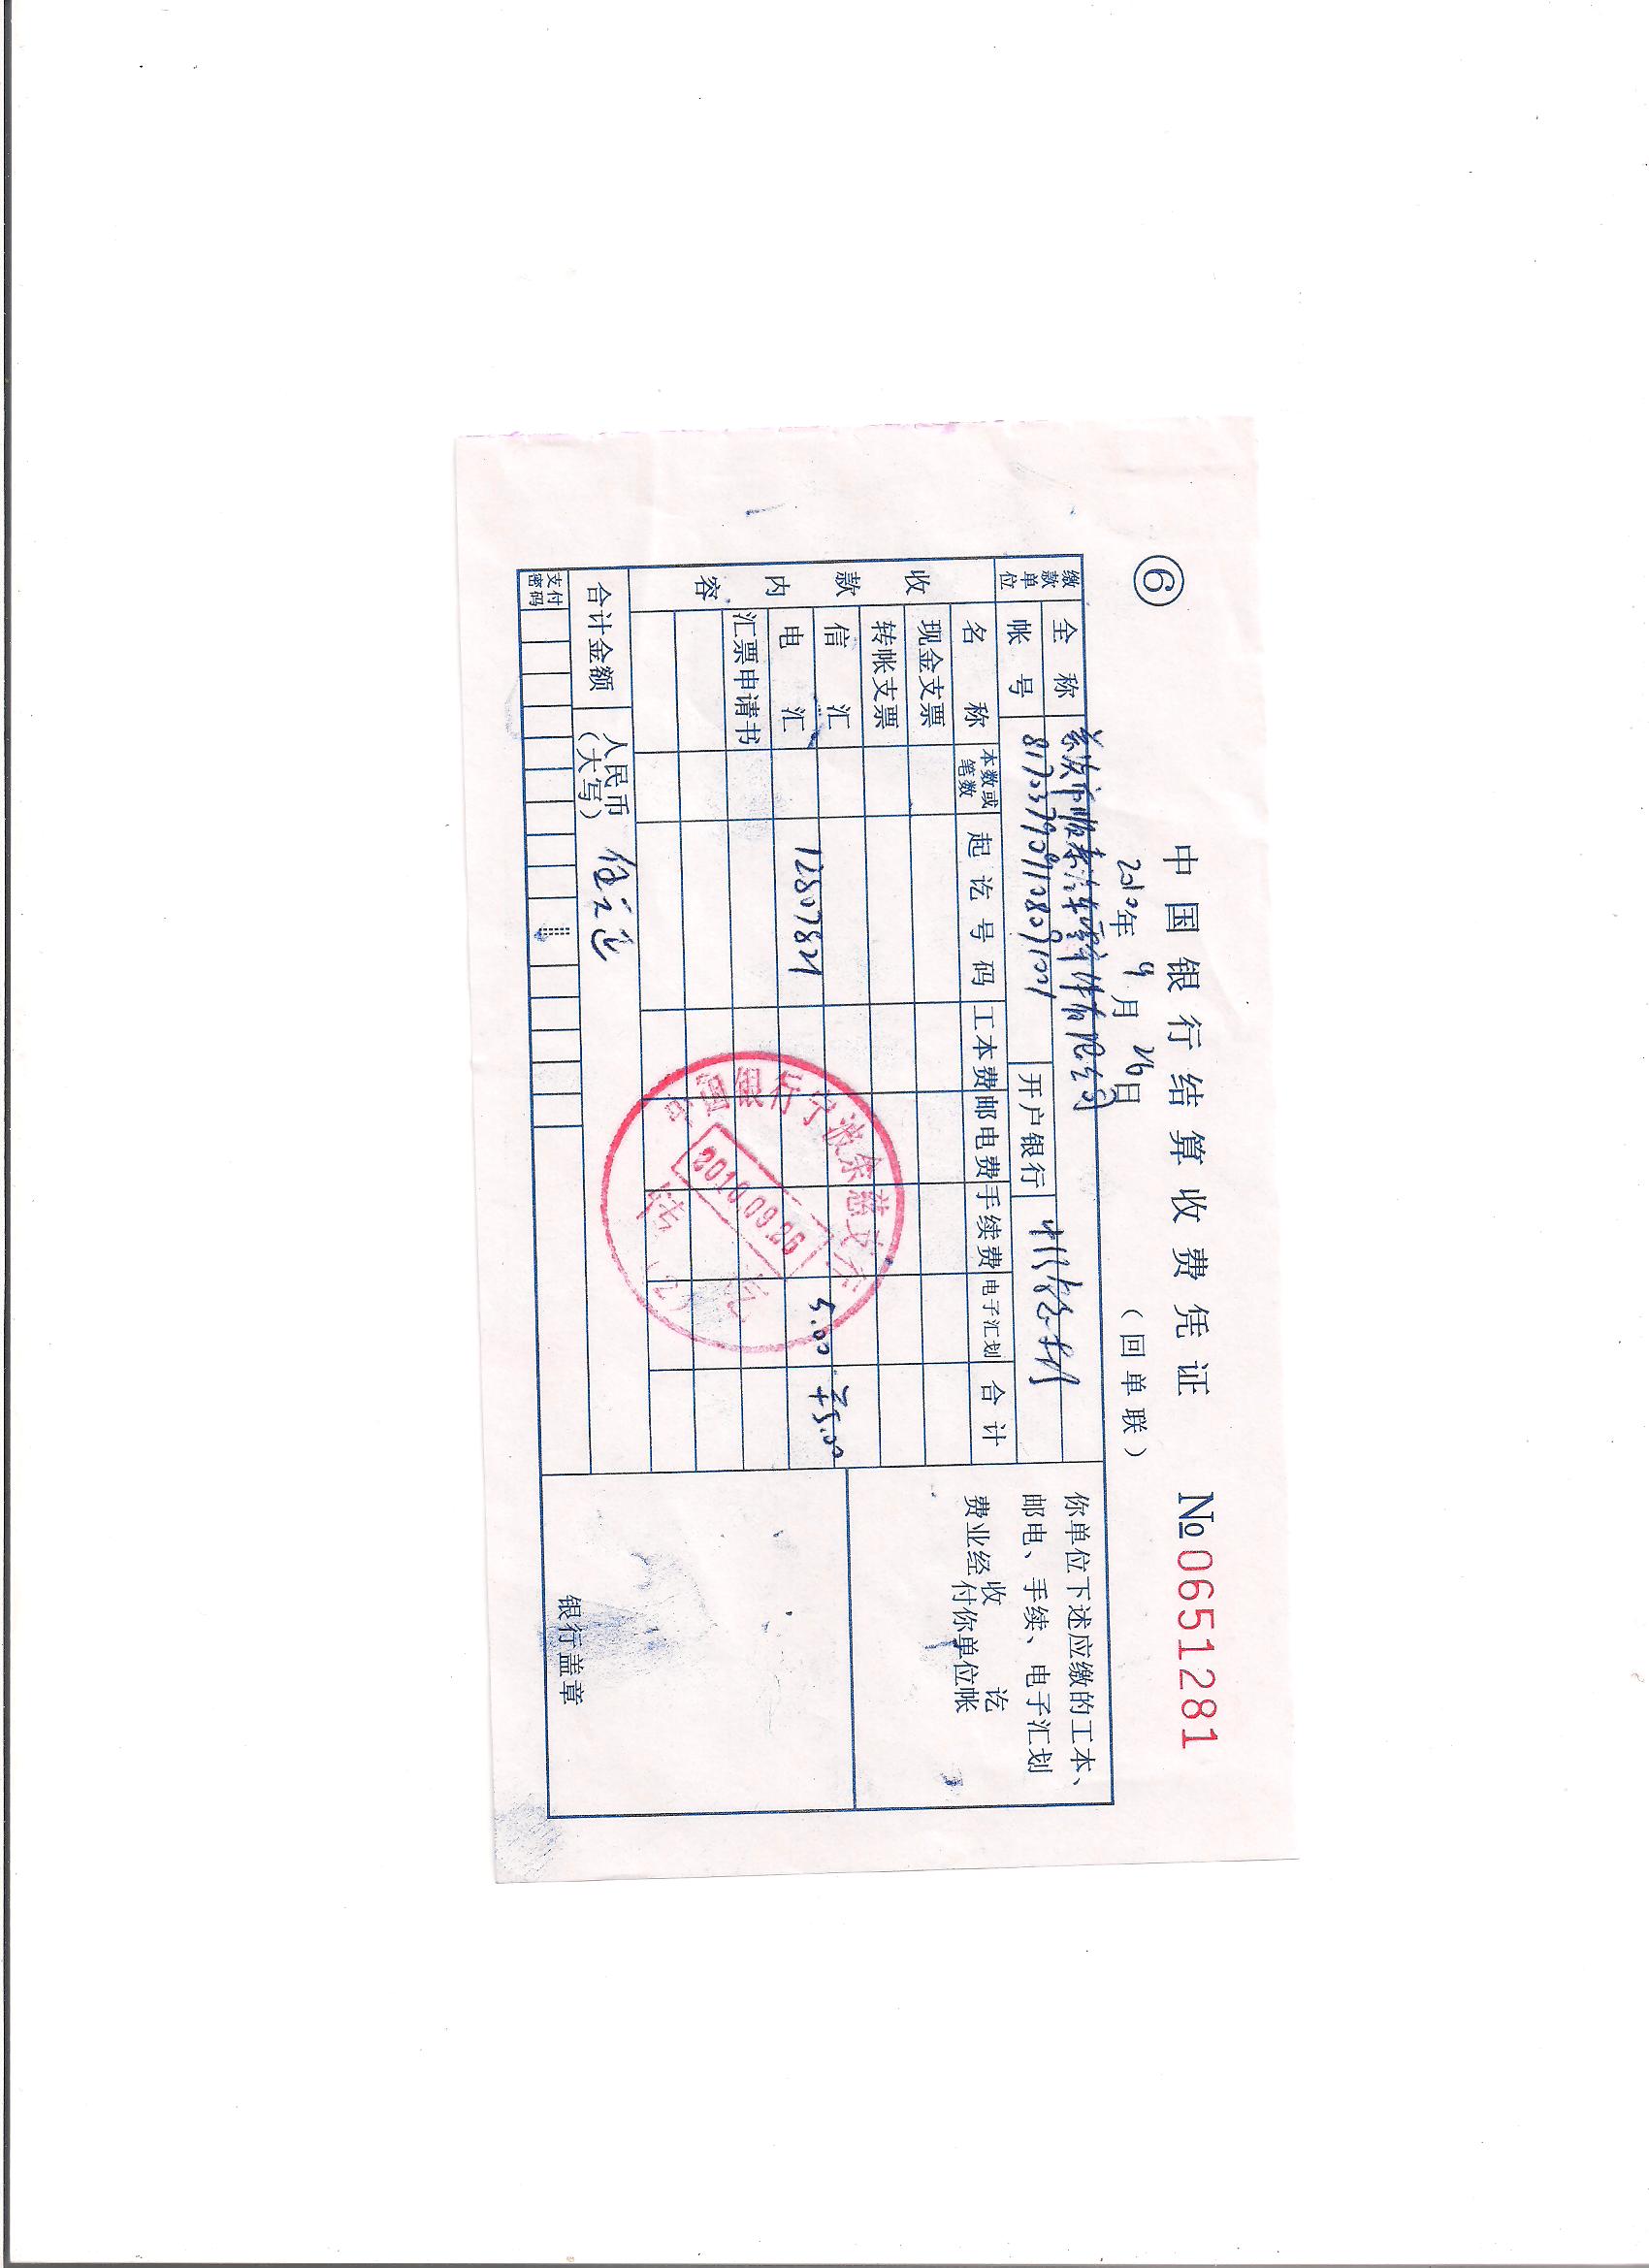 ⑥
中国银行结算收费凭证
№0651281
2010年 9月 26日
（回单联）
缴款单位
全称
汽车零部件有限公司
帐号
开户银行
收款内容
名称 本数或笔数 起讫号码 工本费 邮电费 手续费 电子汇划 合计
现金支票
转帐支票
信汇
电汇 12807821 5.00 ￥5.00
汇票申请书
合计金额 人民币（大写） 伍元正
支付密码
你单位下述应缴的工本、
邮电、手续、电子汇划
费业经收付你单位帐讫
银行盖章
中国银行宁波余慈支行
2010.09.26
转讫
(2)